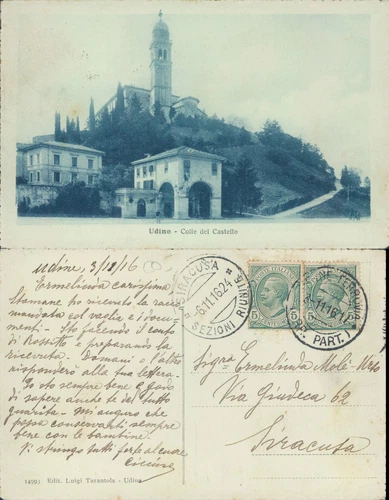 Udine - Colle del Castello
Udine, 3/12/16
Ermelinda carissima
Stamane ho ricevuto la rac-
mandata col vaglia e i docu-
menti - Sto facendo i conti
di Rositto e preparando la
ricevuta. Domani o l'altro
risponderò alla tua lettera.
Io sto sempre bene e godo
di sapere anche te del tutto
guarita. Mi auguro che
possa conservarti sempre
bene con le bambine.
Vi stringo tutti forte al cuore
14993 Edit. Luigi Tarantola - Udine
SIRACUSA
6.11.16.24
SEZIONI RIUNITE
POSTE ITALIANE
5 5
PART.
Sigra Ermelinda Molè
Via Giudeca 62
Siracusa